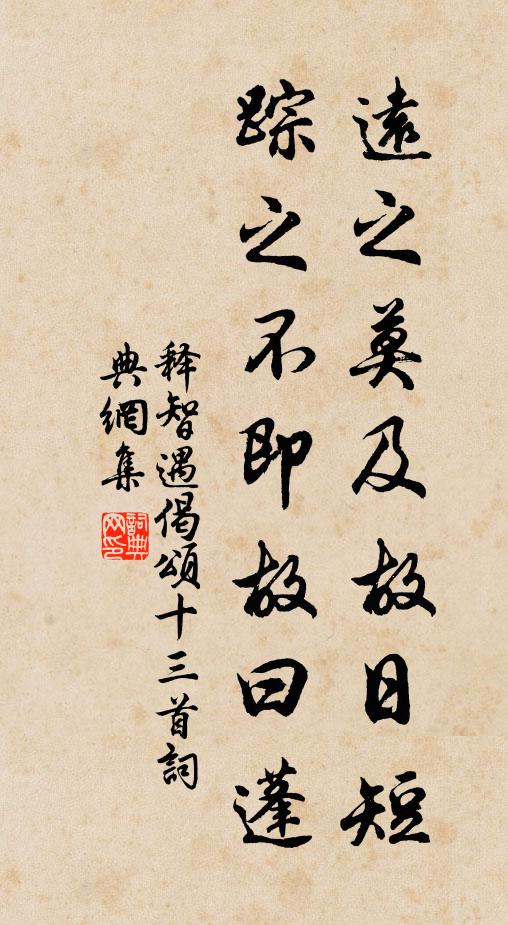 遠之莫及故日短
踪之不即故曰蓬
释智遇偈頌十三首詞
典網集
詞典
网印